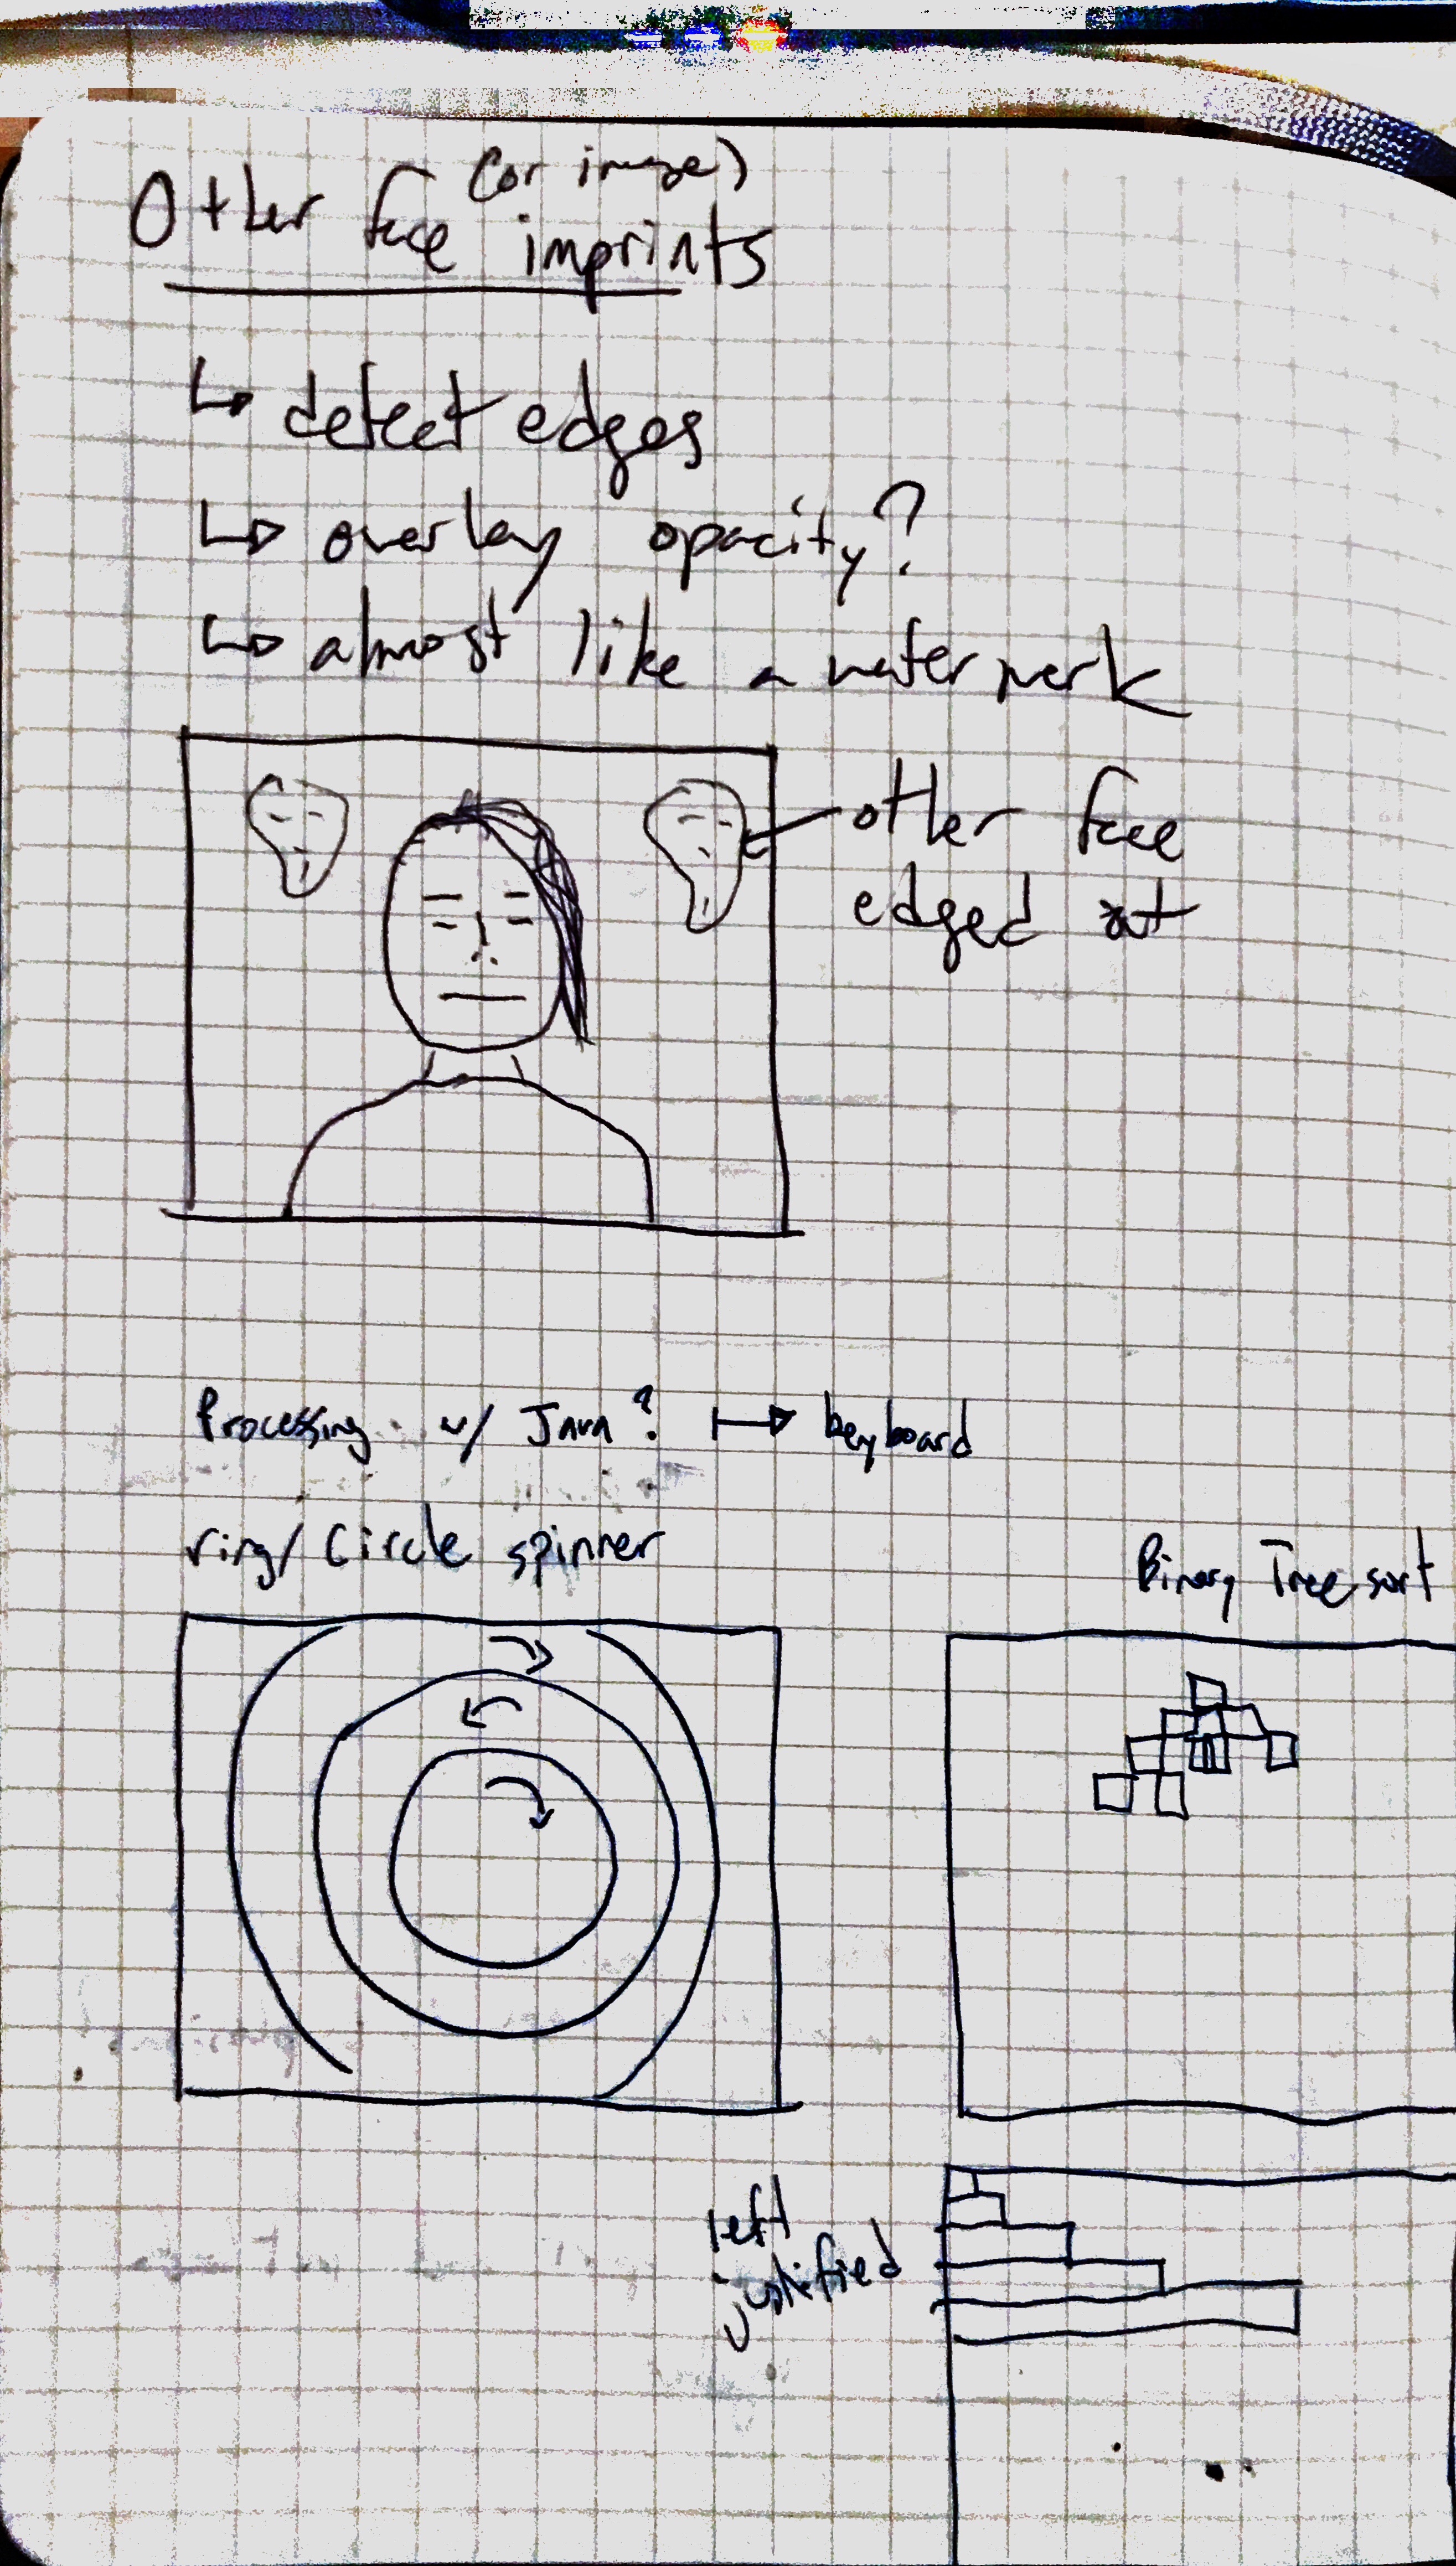 (or image)
Other face imprints
↳ detect edges
↳ overlay opacity?
↳ almost like a watermark
other face
edged out
Processing w/ Java? ↦ keyboard
ring/Circle spinner
Binary Tree sort
left
justified